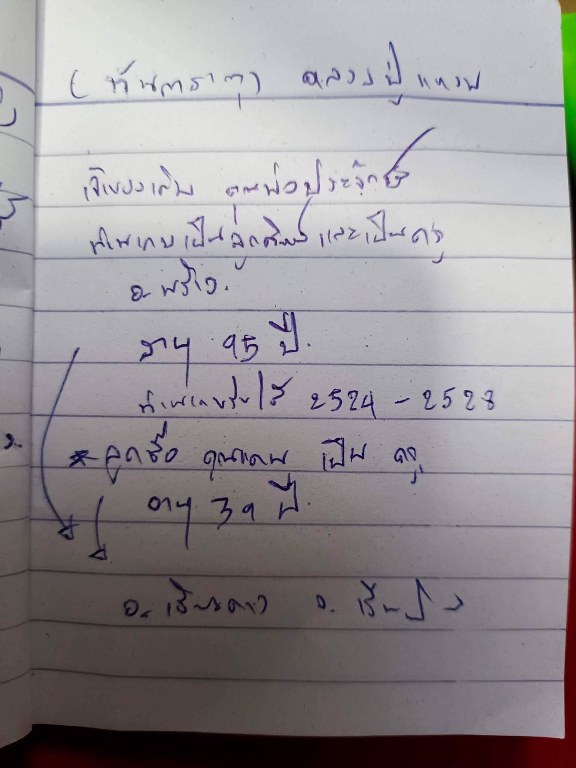 ( ทันตราตุ) หลวงปู่ แหวน
เจ้าของเดิม คุณพ่อประจักษ์
เป็นลูกศิษย์ และเป็นครู
อ. พร้าว.
อายุ 95 ปี.
2524 - 2528
* ลูกชื่อ คุณแดน เป็น ครู
อายุ 39 ปี.
อ. เชียงดาว จ. เชียงใหม่